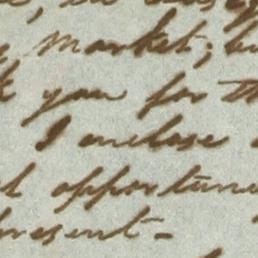 market; bu
you for th
I enclose
opportune
present-